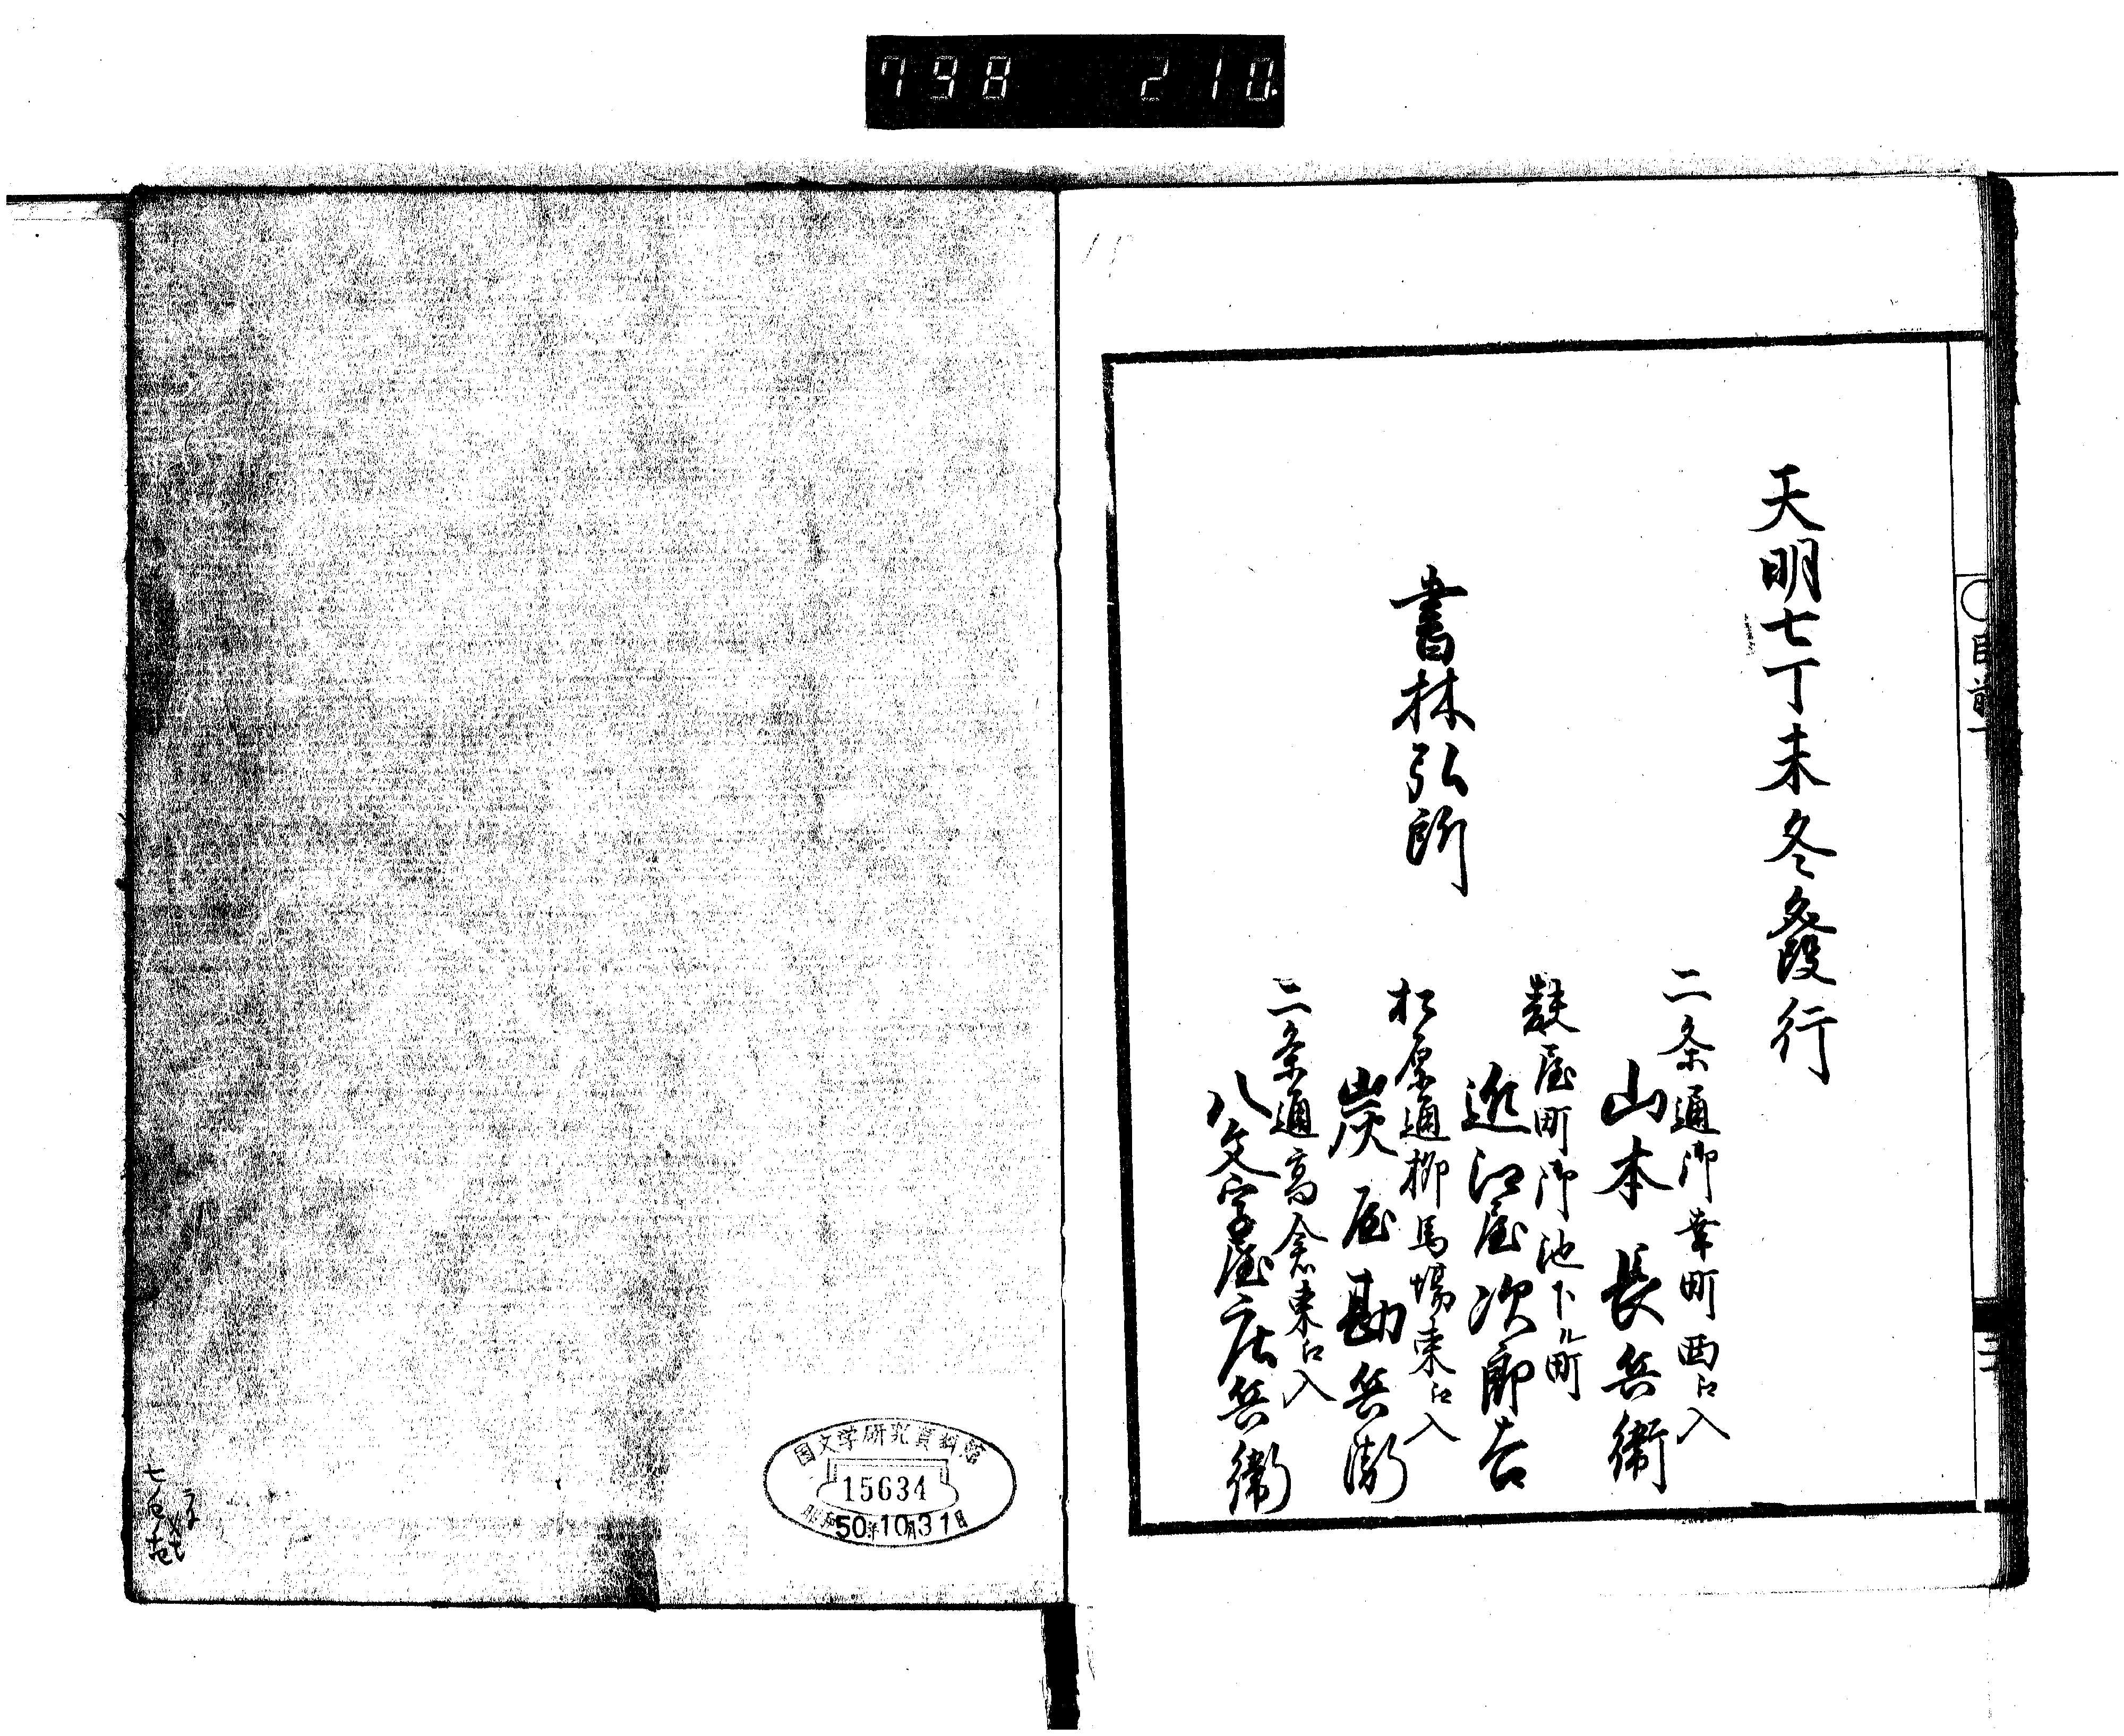 798 210
天明七丁未冬發行
書林弘所
二条通御幸町西へ入
山本長兵衛
麩屋町御池下ル町
近江屋次郎吉
松原通柳馬場東へ入
炭屋勘兵衛
二条通高倉東へ入
八文字屋庄兵衛
国文学研究資料館
15634
昭和50年10月31日